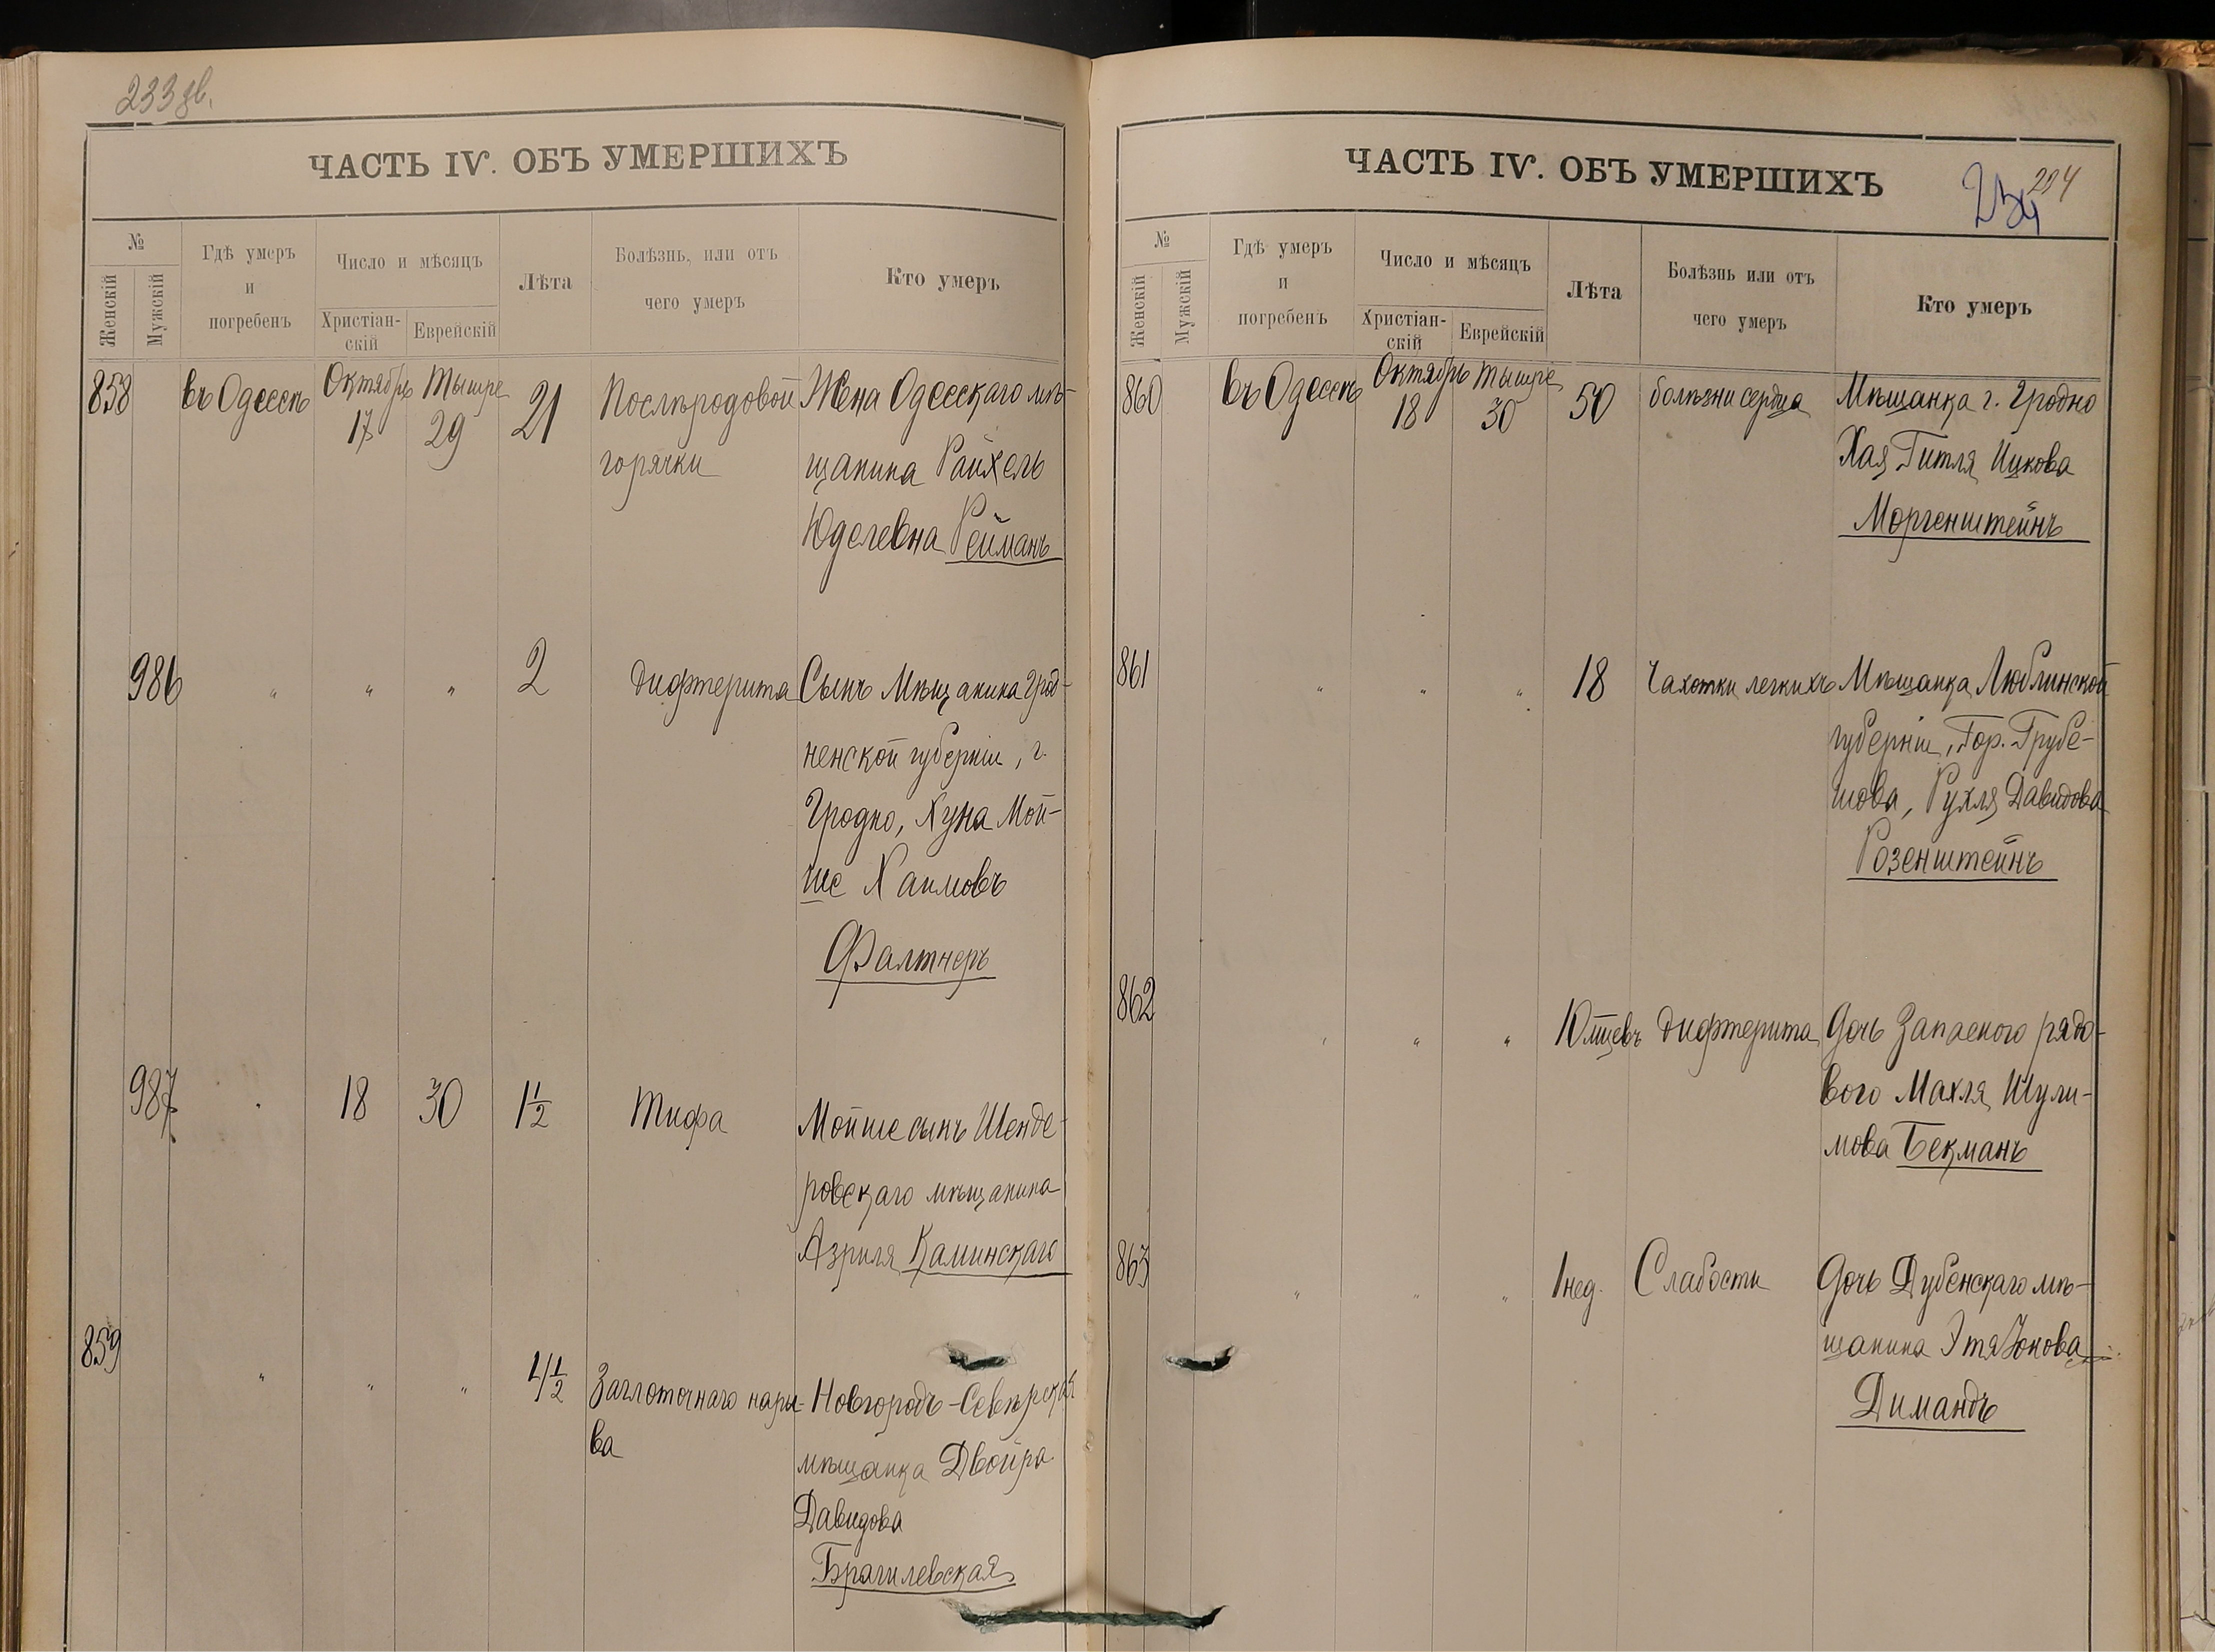 233 об.
ЧАСТЬ IV. ОБЪ УМЕРШИХЪ
№
Женскій
Мужскій
Гдѣ умеръ
и
погребенъ
Число и мѣсяцъ
Христіан-
скій
Еврейскій
Лѣта
Болѣзнь, или отъ
чего умеръ
Кто умеръ
858 въ Одессѣ Октябрь 17 Тышре 29 21 Послѣродовой Жена Одесскаго мѣ-
горячки щанина Райхель
Юделевна Рейманъ
986 " " " 2 дифтерита Сынъ Мѣщанина Грод-
ненской губерніи, г.
Гродно, Хуна Мой-
ше Хаимовъ
Фалтнеръ
987 " 18 30 1½ Тифа Мойше сынъ Шенде-
ровскаго мѣщанина
Азриля Каминскаго
859 " " " 4½ Заглоточнаго нары- Новгородъ-Сѣверская
ва мѣщанка Двойра
Давидова
Брагилевская
ЧАСТЬ IV. ОБЪ УМЕРШИХЪ
234
№
Женскій
Мужскій
Гдѣ умеръ
и
погребенъ
Число и мѣсяцъ
Христіан-
скій
Еврейскій
Лѣта
Болѣзнь или отъ
чего умеръ
Кто умеръ
860 въ Одессѣ Октябрь 18 Тышре 30 50 болѣзни сердца Мѣщанка г. Гродно
Хая Гитля Ицкова
Моргенштейнъ
861 " " " 18 Чахотки легкихъ Мѣщанка Люблинской
губерніи, Гор. Грубе-
шова, Рухля Давидова
Розенштейнъ
862 " " " 10 мѣцевъ дифтерита Дочь Запасного рядо-
вого Махля Шули-
мова Бекманъ
863 " " " 1 нед. Слабости Дочь Дубенскаго мѣ-
щанина Этя
Димандъ